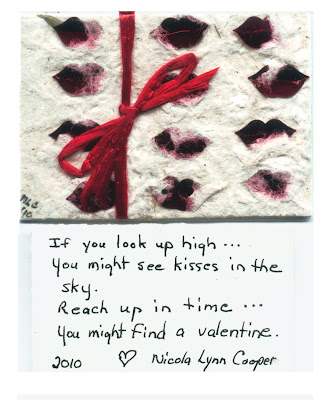 If you look up high ...
You might see kisses in the
sky.
Reach up in time ...
You might find a valentine.
2010 ♡ Nicola Lynn Cooper